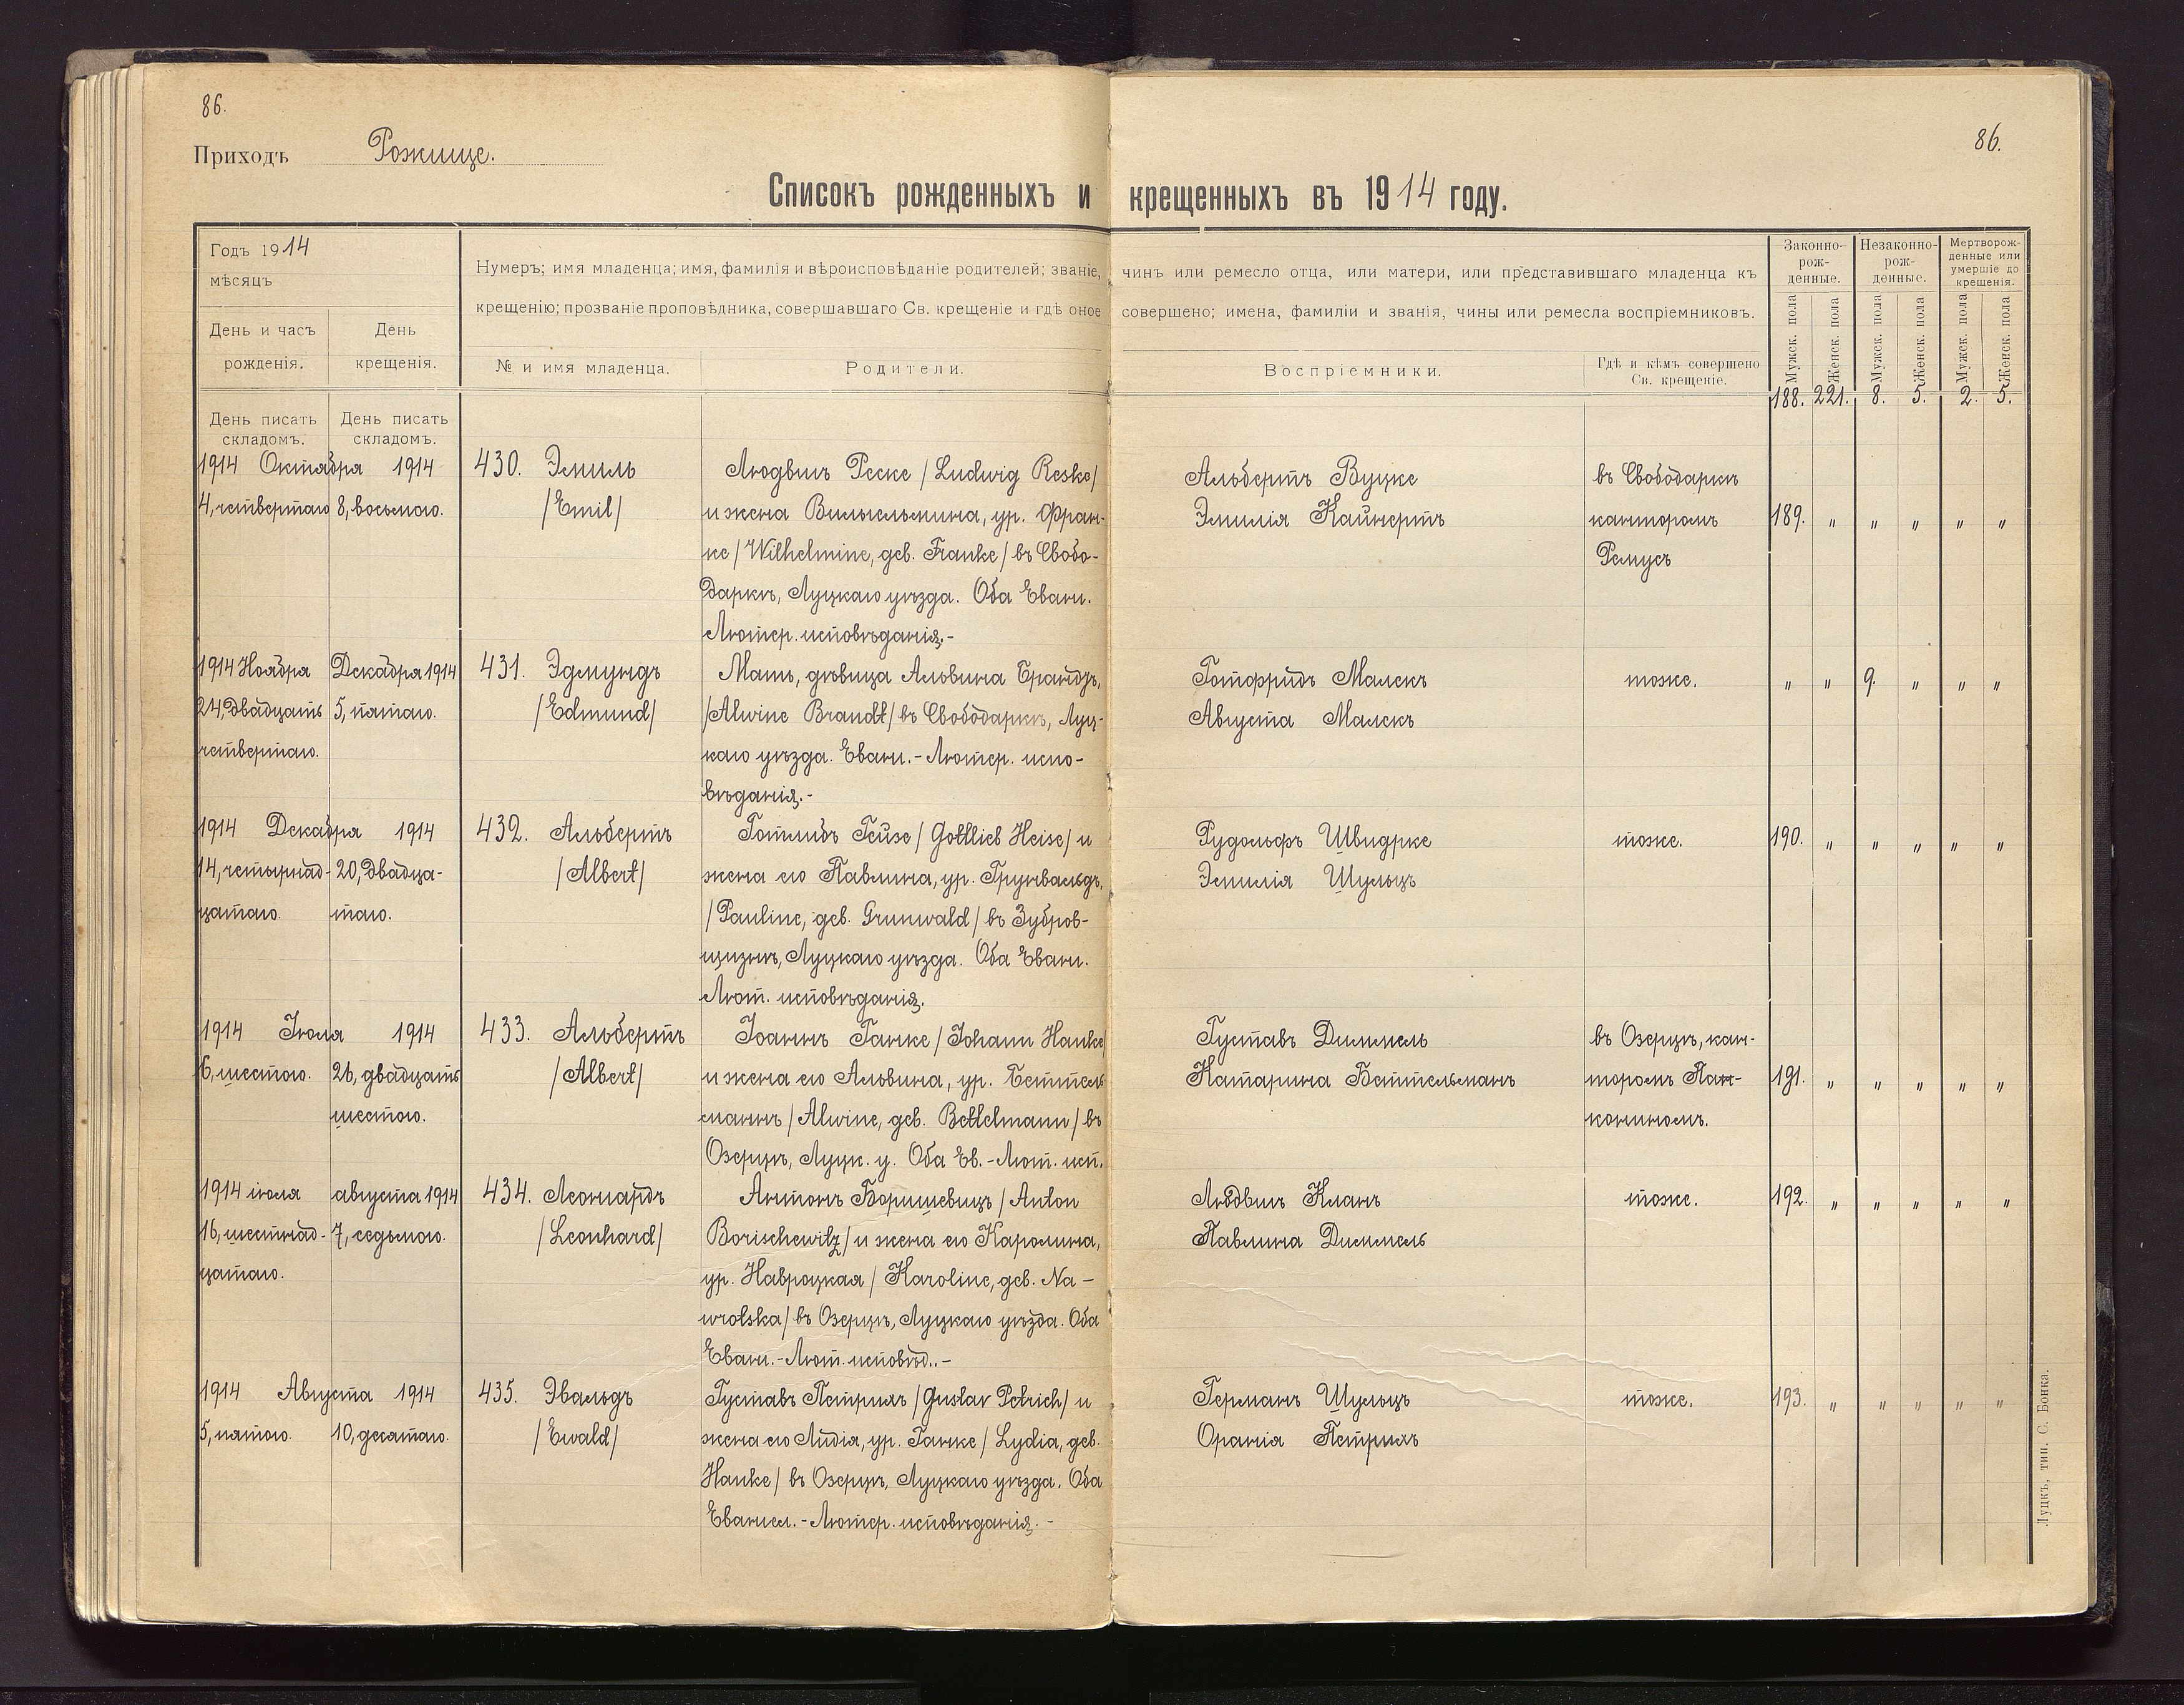 86.
Приходъ Рожище.
86.
Списокъ рожденныхъ и крещенныхъ въ 1914 году.
Годъ 1914
мѣсяцъ
День и часъ рожденія.
День крещенія.
Нумеръ; имя младенца; имя, фамилія и вѣроисповѣданіе родителей; званіе, чинъ или ремесло отца, или матери, или представившаго младенца къ
крещенію; прозваніе проповѣдника, совершавшаго Св. крещеніе и гдѣ оное совершено; имена, фамиліи и званія, чины или ремесла воспріемниковъ.
№ и имя младенца.
Родители.
Воспріемники.
Гдѣ и кѣмъ совершено
Св. крещеніе.
Законно-
рож-
денные.
Незаконно-
рож-
денные.
Мертворож-
денные или
умершіе до
крещенія.
Мужск. пола
Женск. пола
Мужск. пола
Женск. пола
Мужск. пола
Женск. пола
188. 221. 8. 5. 2. 5.
День писать
складомъ.
День писать
складомъ.
1914 Октября 1914
4, четвертаго
8, восьмого.
430. Эмиль
/Emil/
Людвигъ Реске /Ludwig Reske/
и жена Вильгельмина, ур. Фран-
ке /Wilhelmine, geb. Franke/ въ Свобо-
даркѣ, Луцкаго уѣзда. Оба Еванг.
Лютер. исповѣданія.-
Альбертъ Вуцке
Эмилія Кайнертъ
въ Свободаркѣ
канторомъ
Ремусъ
189. " " " " "
1914 Ноября
24, двадцать
четвертаго.
Декабря 1914
5, пятаго.
431. Эдмундъ
/Edmund/
Мать, дѣвица Альвина Брандъ,
/Alwine Brandt/ въ Свободаркѣ, Луц-
каго уѣзда. Еванг.-Лютер. испо-
вѣданія.-
Готфридъ Малекъ
Августа Малекъ
тоже.
" " 9. " " "
1914 Декабря 1914
14, четырнад-
цатаго.
20, двадца-
таго.
432. Альбертъ
/Albert/
Готлибъ Гейзе /Gottlieb Heise/ и
жена его Павлина, ур. Грунвальдъ,
/Pauline, geb. Grunwald/ въ Зубров-
щизнѣ, Луцкаго уѣзда. Оба Еванг.
Лют. исповѣданія.
Рудольфъ Швидрке
Эмилія Шульцъ
тоже.
190. " " " " "
1914 Іюля 1914
6, шестого.
26, двадцать
шестого.
433. Альбертъ
/Albert/
Іоаннъ Ганке /Johann Hanke/
и жена его Альвина, ур. Беттель
маннъ /Alwine, geb. Bettelmann/ въ
Озерцѣ, Луцк. у. Оба Ев.-Лют. исп.
Густавъ Диммель
Катарина Беттельманъ
въ Озерцѣ, кан-
торомъ Пан-
кониномъ.
191. " " " " "
1914 іюля
16, шестнад-
цатаго.
августа 1914
7, седьмого.
434. Леонардъ
/Leonhard/
Антонъ Боришевицъ /Anton
Borischewitz/ и жена его Каролина,
ур. Навроцкая /Karoline, geb. Na-
wrotska/ въ Озерцѣ, Луцкаго уѣзда. Оба
Еванг.-Лют. исповѣд..-
Людвигъ Кланъ
Павлина Диммель
тоже.
192. " " " " "
1914 Августа 1914
5, пятого.
10, десятаго.
435. Эвальдъ
/Ewald/
Густавъ Петрихъ /Gustav Petrich/ и
жена его Лидія, ур. Ганке /Lydia, geb.
Hanke/ въ Озерцѣ, Луцкаго уѣзда. Оба
Евангел.-Лютер. исповѣданія.-
Германъ Шульцъ
Оранія Петрихъ
тоже.
193. " " " " "
Луцкъ, тип. С. Бонка.